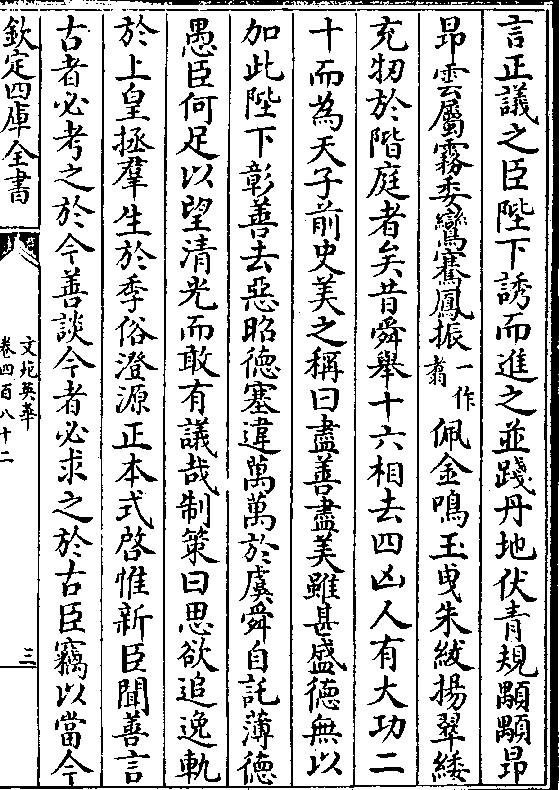 言正議之臣陛下誘而進之並踐丹地伏青規顒顒昂
昂雲屬霧委鸞騫鳳振一作翥佩金鳴玉曵朱紱揚翠緌
充牣於階庭者矣昔舜舉十六相去四凶人有大功二
十而為天子前史美之稱曰盡善盡美雖甚盛徳無以
加此陛下彰善去惡昭徳塞違萬萬於虞舜自託薄徳
愚臣何足以望清光而敢有議哉制策曰思欲追逸軌
於上皇拯羣生於季俗澄源正本式啓惟新臣聞善言
古者必考之於今善談今者必求之於古臣竊以當今
欽定四庫全書
文苑英華
卷四百八十二
三